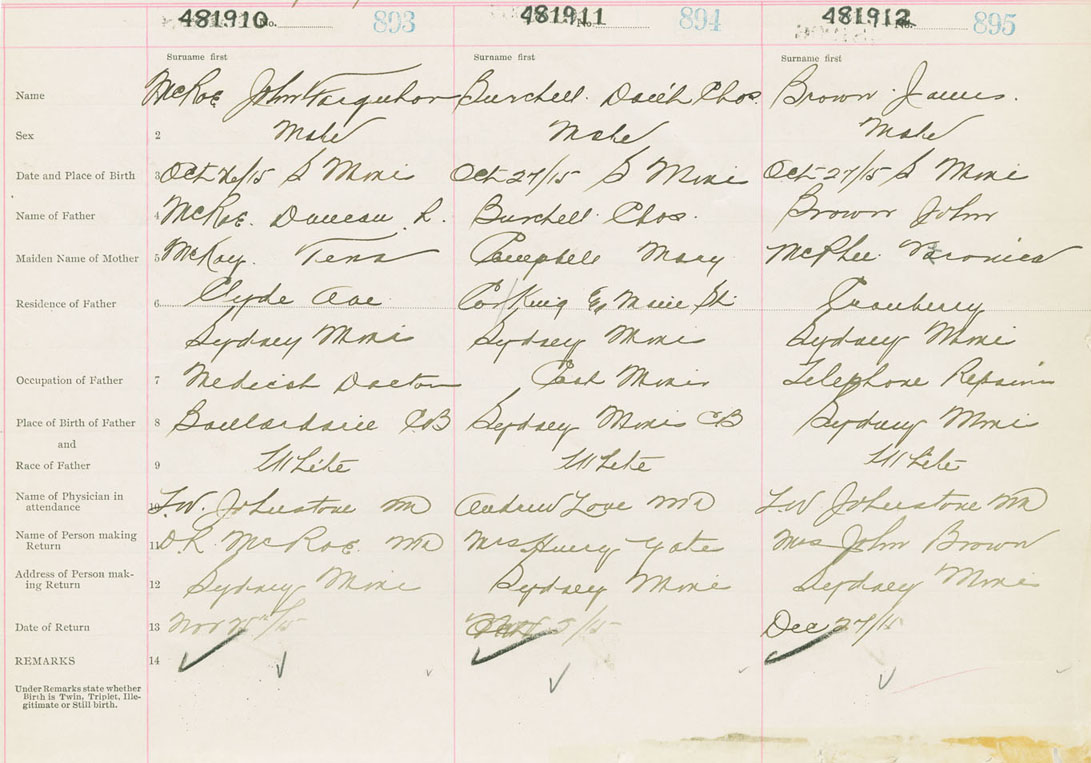 481910 No. 893 481911 No. 894 481912 No. 895
Surname first Surname first Surname first
Name McRae John Farquhar Burchell Daith Chos. Brown James.
Sex 2 Male Male Male
Date and Place of Birth 3 Oct 26/15 S Mines Oct 27/15 S Mines Oct 27/15 S Mines
Name of Father 4 McRae. Duncan R. Burchell Chos. Brown John
Maiden Name of Mother 5 McKay. Tena Campbell Mary McPhee
Residence of Father 6 Clyde Ave Cor King & Main St. Cranberry
Sydney Mines Sydney Mines Sydney Mines
Occupation of Father 7 Medical Doctor Coal Miner Telephone Repairer
Place of Birth of Father 8 CB Sydney Mines CB Sydney Mines
and
Race of Father 9 White White White
Name of Physician in
attendance 10 L.W. Johnstone MD Andrew Love MD LW Johnstone MD
Name of Person making
Return 11 D.R. McRae. MD Mrs Huey Yates Mrs John Brown
Address of Person mak-
ing Return 12 Sydney Mines Sydney Mines Sydney Mines
Date of Return 13 Nov /15 5/15 Dec 27/15
REMARKS 14
Under Remarks state whether
Birth is Twin, Triplet, Ille-
gitimate or Still birth.